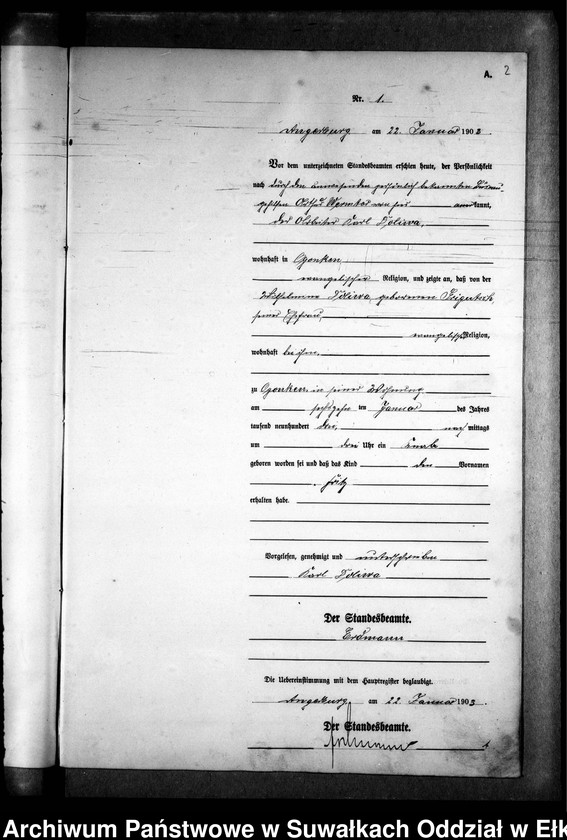 A. 2
Nr. 1.
Angerburg am 22. Januar 1903
Vor dem unterzeichneten Standesbeamten erschien heute, der Persönlichkeit
nach durch den anwesenden persönlich bekannten
von hier anerkannt,
der Karl Doliwa,
wohnhaft in Ogonken,
evangelischer Religion, und zeigte an, daß von der
Wilhelmine Doliwa geborenen
seiner Ehefrau,
evangelischer Religion,
wohnhaft bei ihm,
zu Ogonken in seiner Wohnung
am sechszehn ten Januar des Jahres
tausend neunhundert drei, nach mittags
um drei Uhr ein Knabe
geboren worden sei und daß das Kind den Vornamen
Fritz
erhalten habe.
Vorgelesen, genehmigt und unterschrieben
Karl Doliwa
Der Standesbeamte.
Erdmann
Die Uebereinstimmung mit dem Hauptregister beglaubigt.
Angerburg, am 22. Januar 1903
Der Standesbeamte.
Erdmann
Archiwum Państwowe w Suwałkach Oddział w Ełk